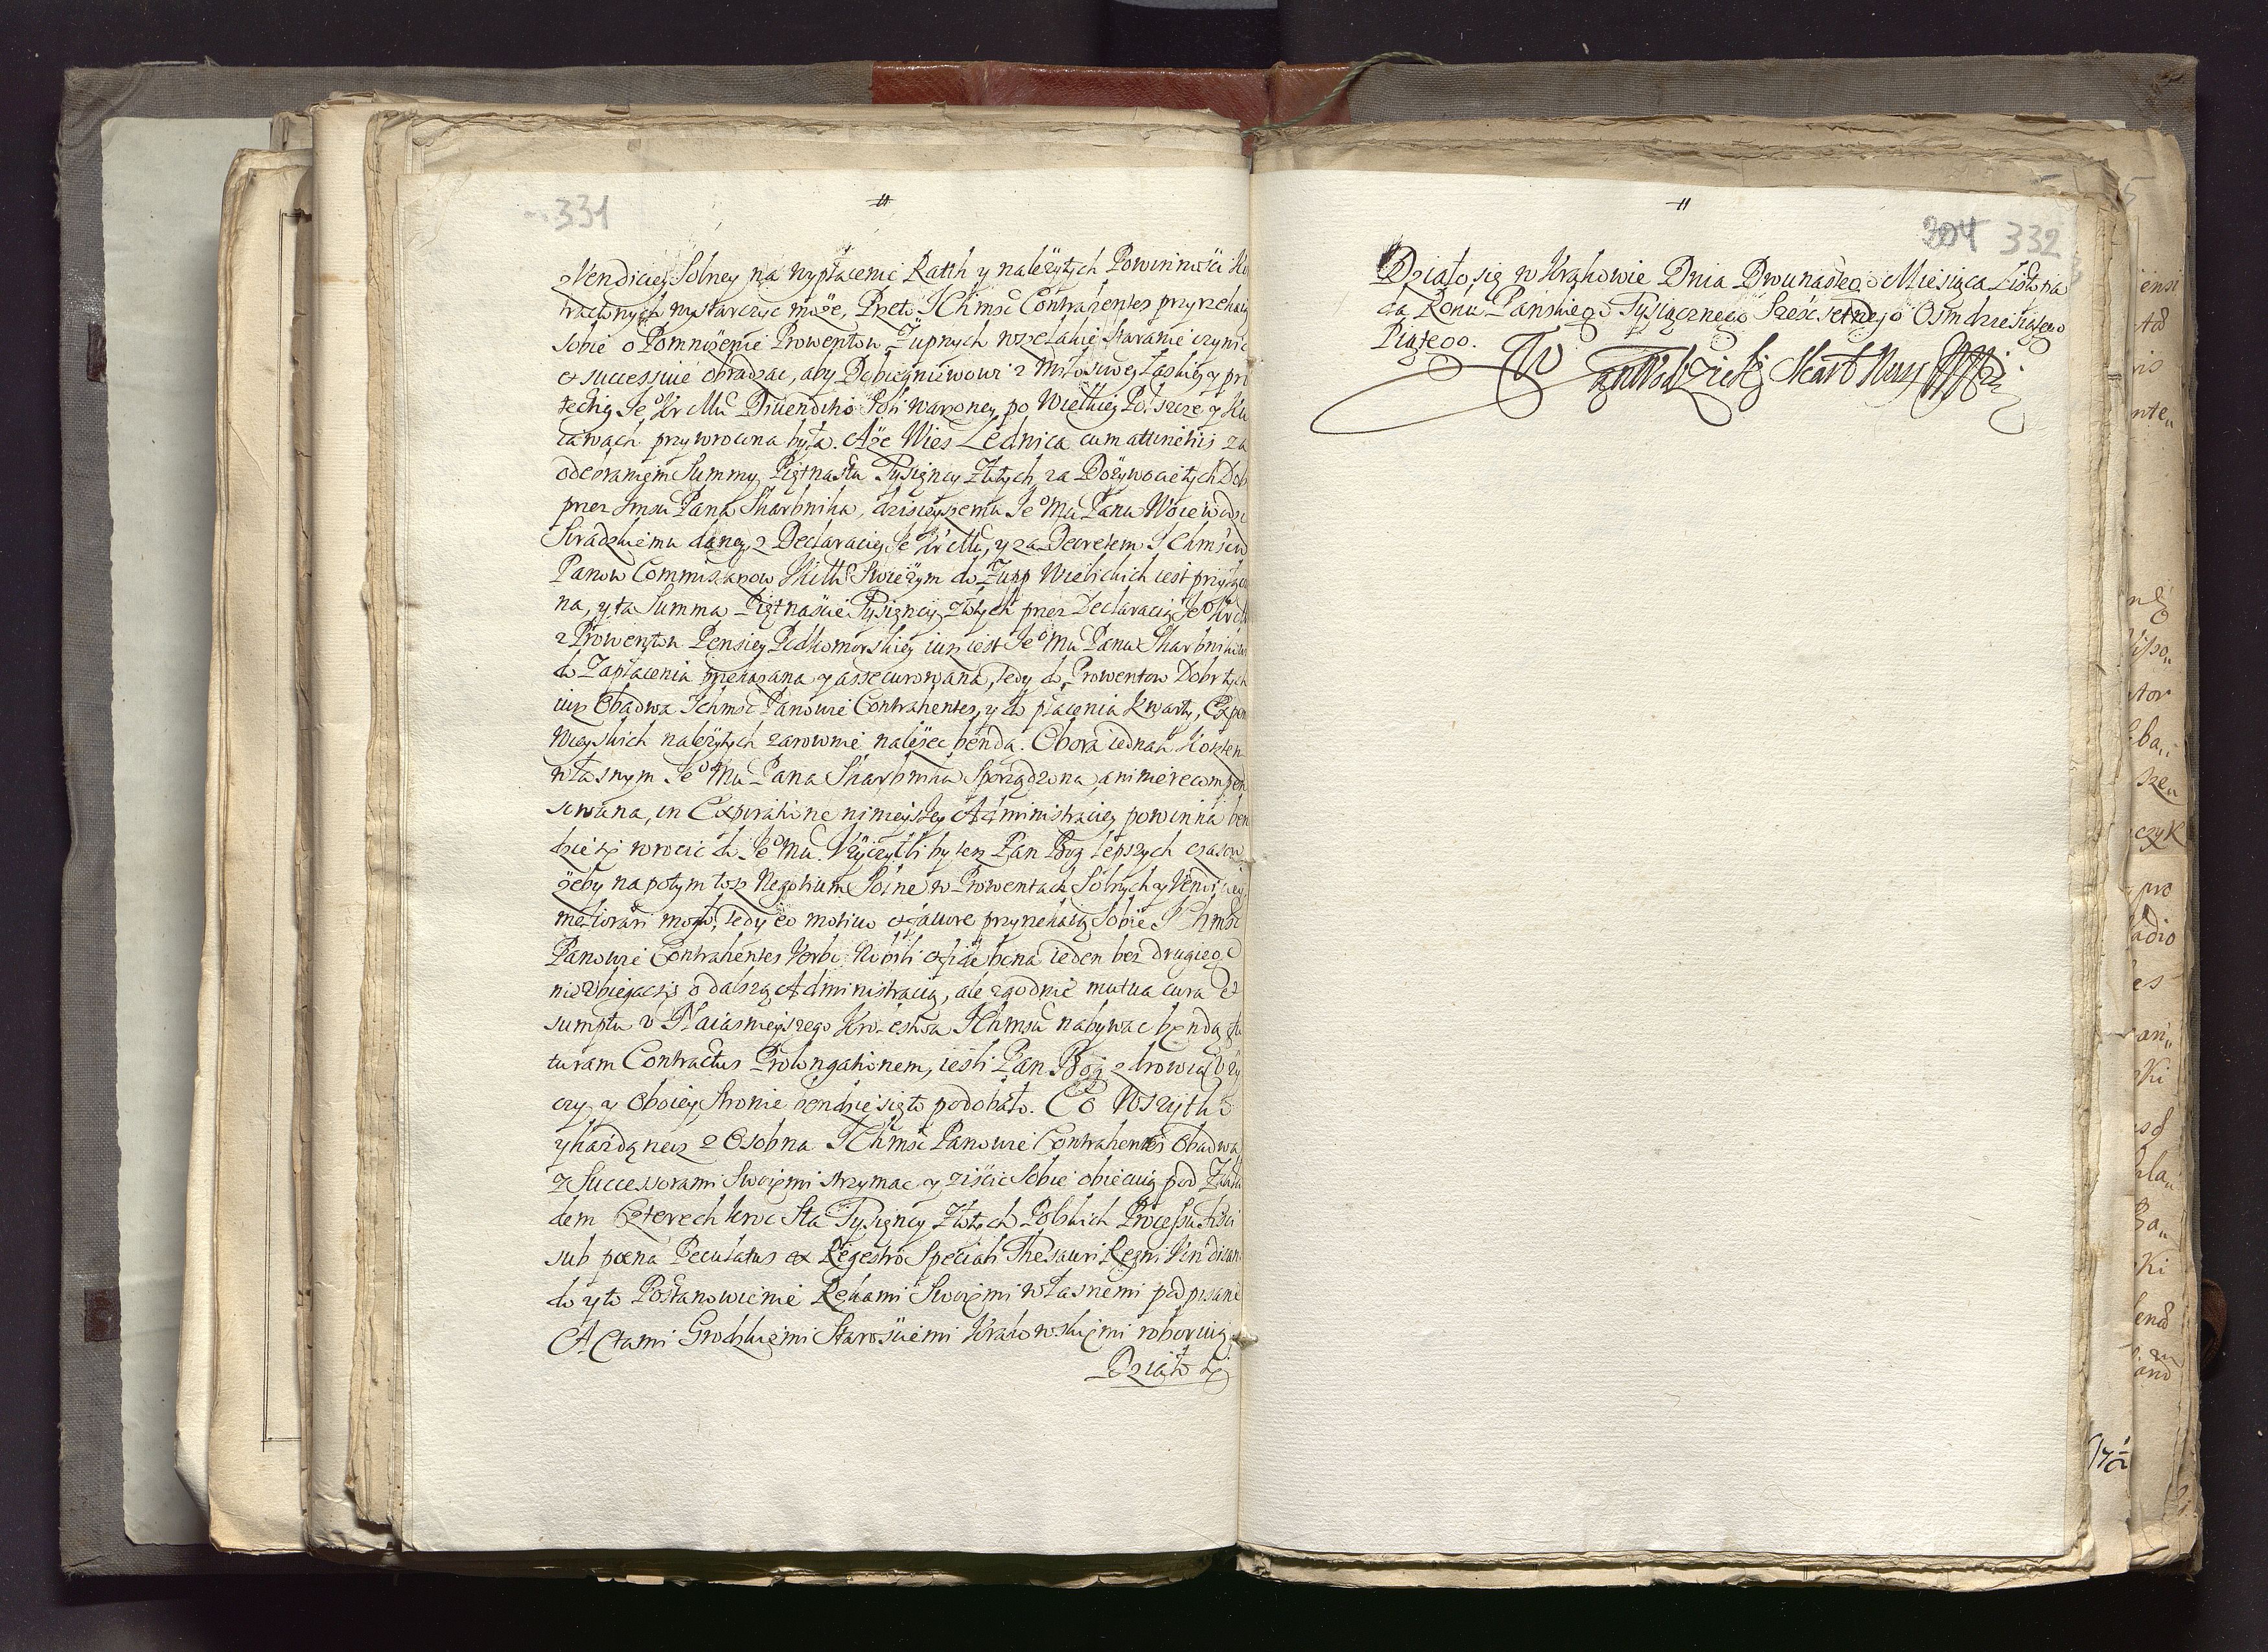 331
Vendiciey Solney na wypłacenie Rath y należytych Powinności Kon
tractowych wystarczyc może, Przeto Ichmsc Contrahentes przyrzekaią
sobie o Pomnożenie Prowentow Żupnych wszelakie staranie czynic
et successive obradzac, aby Dębiegniewowi z Miłosciwey Łaski y pro
tectiey Je° Kr Mci Soli warzoney po Wielkiey Polszcze y Ku
iawach przywrocona była. Aże Wies Lednica cum attinentiis za
odebraniem Summy Piętnastu Tysięcy Złotych za Dożywocie tych Dobr
przez Jmsci Pana Skarbnika, dzisieyszemu Je° Mci Panu Woiewodzie
Siradzkiemu daney, z Declaraciey Je° Kr Mci, y za Decretem Ichmsciow
Panow Commissarzow Swieżym do Żupp Wielickich iest przyłączo
na, y ta Summa Piętnascie Tysięcy Złotych przez Declaracią Je° Kr Mci
z Prowentow Pensiey Podkomorskiey iuz iest Je° Mci Panu Skarbnikowi
do Zapłacenia przekazana y assecurowana, tedy do Prowentow Dobr tych
iuz Obadwa Ichmsc Panowie Contrahentes, y do płacenia Kwarty, Expens
Wieyskich należytych zarownie należec bęndą. Obora iednak Kosztem
własnym Je° Mci Pana Skarbnika sporządzona, a nie recompen
sowana, in Expiratione ninieyszey Administraciey powinna ben
dzie się wrocic do Je° Mci. Użyczyłliby tesz Pan Bog lepszych czasow
żeby na potym tosz Negotium Solne w Prowentach Solnych y Vendiciey
meliorari mogło, tedy eo motivo et favore przyrzekaią sobie Ichmsc
Panowie Contrahentes Verbo Nobili et fide bona ieden bez drugiego
nie ubiegac się o dalszą Administracią, ale zgodnie mutua cura et
sumptu u Naiasnieyszego Krolestwa Ichmsci nabywac bęndą fu
turam Contractus Prolongationem, iesli Pan Bog zdrowia uży
czy, y Oboiey Stronie bendzie się to podobało. Co Wszytko
y kazdą rzecz z Osobna Ichmsc Panowie Contrahentes Obadwa
z Successorami Swoiemi strzymac y ziscic sobie obiecuią pod Zakła
dem Czterechkroc Sta Tysięcy Złotych Polskich Processu Fisci
sub poena Peculatus ex Regestro Speciali Thesauri Regni Vindican
do y to Postanowienie Rękami Swoiemi własnemi podpisane
Actami Grodzkiemi Starościemi Krakowskiemi roboruią.
Działo się
304 332
Działo się w Krakowie Dnia Dwunastego Miesiąca Listopa
da Roku Panskiego Tysiącznego Sześćsetnego Osmdziesiątego
Piątego.